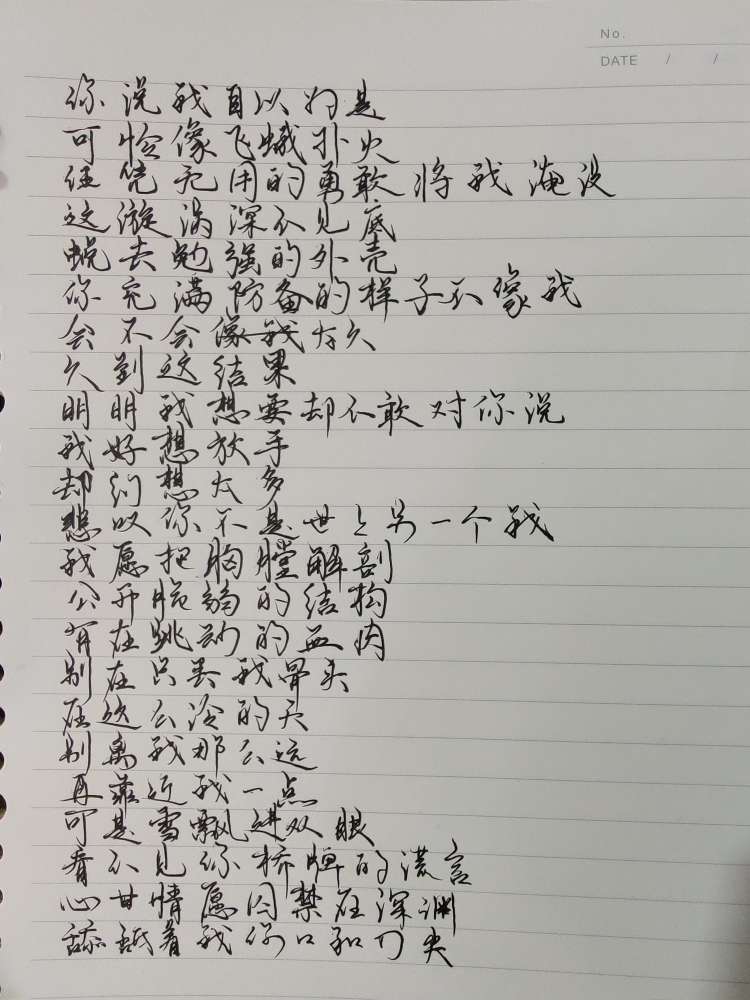 No.
DATE / /
你说我自以为是
可怜像飞蛾扑火
任凭无用的勇敢将我淹没
这漩涡深不见底
蜕去勉强的外壳
你充满防备的样子不像我
会不会太久
久到这结果
明明我想要却不敢对你说
我好想放手
却幻想太多
悲叹你不是世上另一个我
我愿把胸膛解剖
公开脆弱的结构
有在跳动的血肉
别在只丢我骨头
在这么冷的天
别离我那么远
再靠近我一点
可是雪飘进双眼
看不见你桥牌的谎言
心甘情愿囚禁在深渊
舔舐着我伤口和刀尖